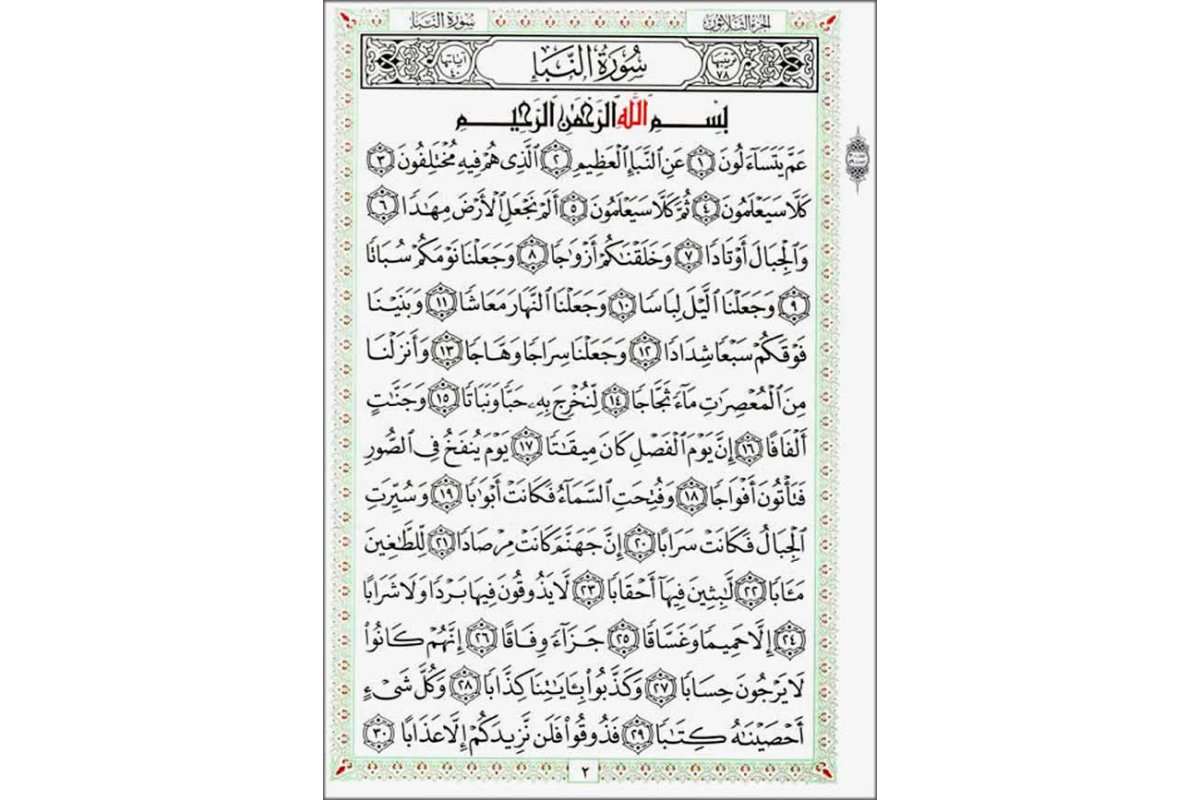 الجزء الثلاثون
سورة النبأ
ترتيبها ٧٨
سُورَةُ النَّبَإِ
آياتها ٤٠
بِسْمِ اللَّهِ الرَّحْمَٰنِ الرَّحِيمِ
عَمَّ يَتَسَآءَلُونَ ١ عَنِ ٱلنَّبَإِ ٱلْعَظِيمِ ٢ ٱلَّذِى هُمْ فِيهِ مُخْتَلِفُونَ ٣
كَلَّا سَيَعْلَمُونَ ٤ ثُمَّ كَلَّا سَيَعْلَمُونَ ٥ أَلَمْ نَجْعَلِ ٱلْأَرْضَ مِهَٰدًا ٦
وَٱلْجِبَالَ أَوْتَادًا ٧ وَخَلَقْنَٰكُمْ أَزْوَٰجًا ٨ وَجَعَلْنَا نَوْمَكُمْ سُبَاتًا
٩ وَجَعَلْنَا ٱلَّيْلَ لِبَاسًا ١٠ وَجَعَلْنَا ٱلنَّهَارَ مَعَاشًا ١١ وَبَنَيْنَا
فَوْقَكُمْ سَبْعًا شِدَادًا ١٢ وَجَعَلْنَا سِرَاجًا وَهَّاجًا ١٣ وَأَنزَلْنَا
مِنَ ٱلْمُعْصِرَٰتِ مَآءً ثَجَّاجًا ١٤ لِّنُخْرِجَ بِهِۦ حَبًّا وَنَبَاتًا ١٥ وَجَنَّٰتٍ
أَلْفَافًا ١٦ إِنَّ يَوْمَ ٱلْفَصْلِ كَانَ مِيقَٰتًا ١٧ يَوْمَ يُنفَخُ فِى ٱلصُّورِ
فَتَأْتُونَ أَفْوَاجًا ١٨ وَفُتِحَتِ ٱلسَّمَآءُ فَكَانَتْ أَبْوَٰبًا ١٩ وَسُيِّرَتِ
ٱلْجِبَالُ فَكَانَتْ سَرَابًا ٢٠ إِنَّ جَهَنَّمَ كَانَتْ مِرْصَادًا ٢١ لِّلطَّٰغِينَ
مَـَٔابًا ٢٢ لَّٰبِثِينَ فِيهَآ أَحْقَابًا ٢٣ لَّا يَذُوقُونَ فِيهَا بَرْدًا وَلَا شَرَابًا
٢٤ إِلَّا حَمِيمًا وَغَسَّاقًا ٢٥ جَزَآءً وِفَاقًا ٢٦ إِنَّهُمْ كَانُوا۟
لَا يَرْجُونَ حِسَابًا ٢٧ وَكَذَّبُوا۟ بِـَٔايَٰتِنَا كِذَّابًا ٢٨ وَكُلَّ شَىْءٍ
أَحْصَيْنَٰهُ كِتَٰبًا ٢٩ فَذُوقُوا۟ فَلَن نَّزِيدَكُمْ إِلَّا عَذَابًا ٣٠
٢